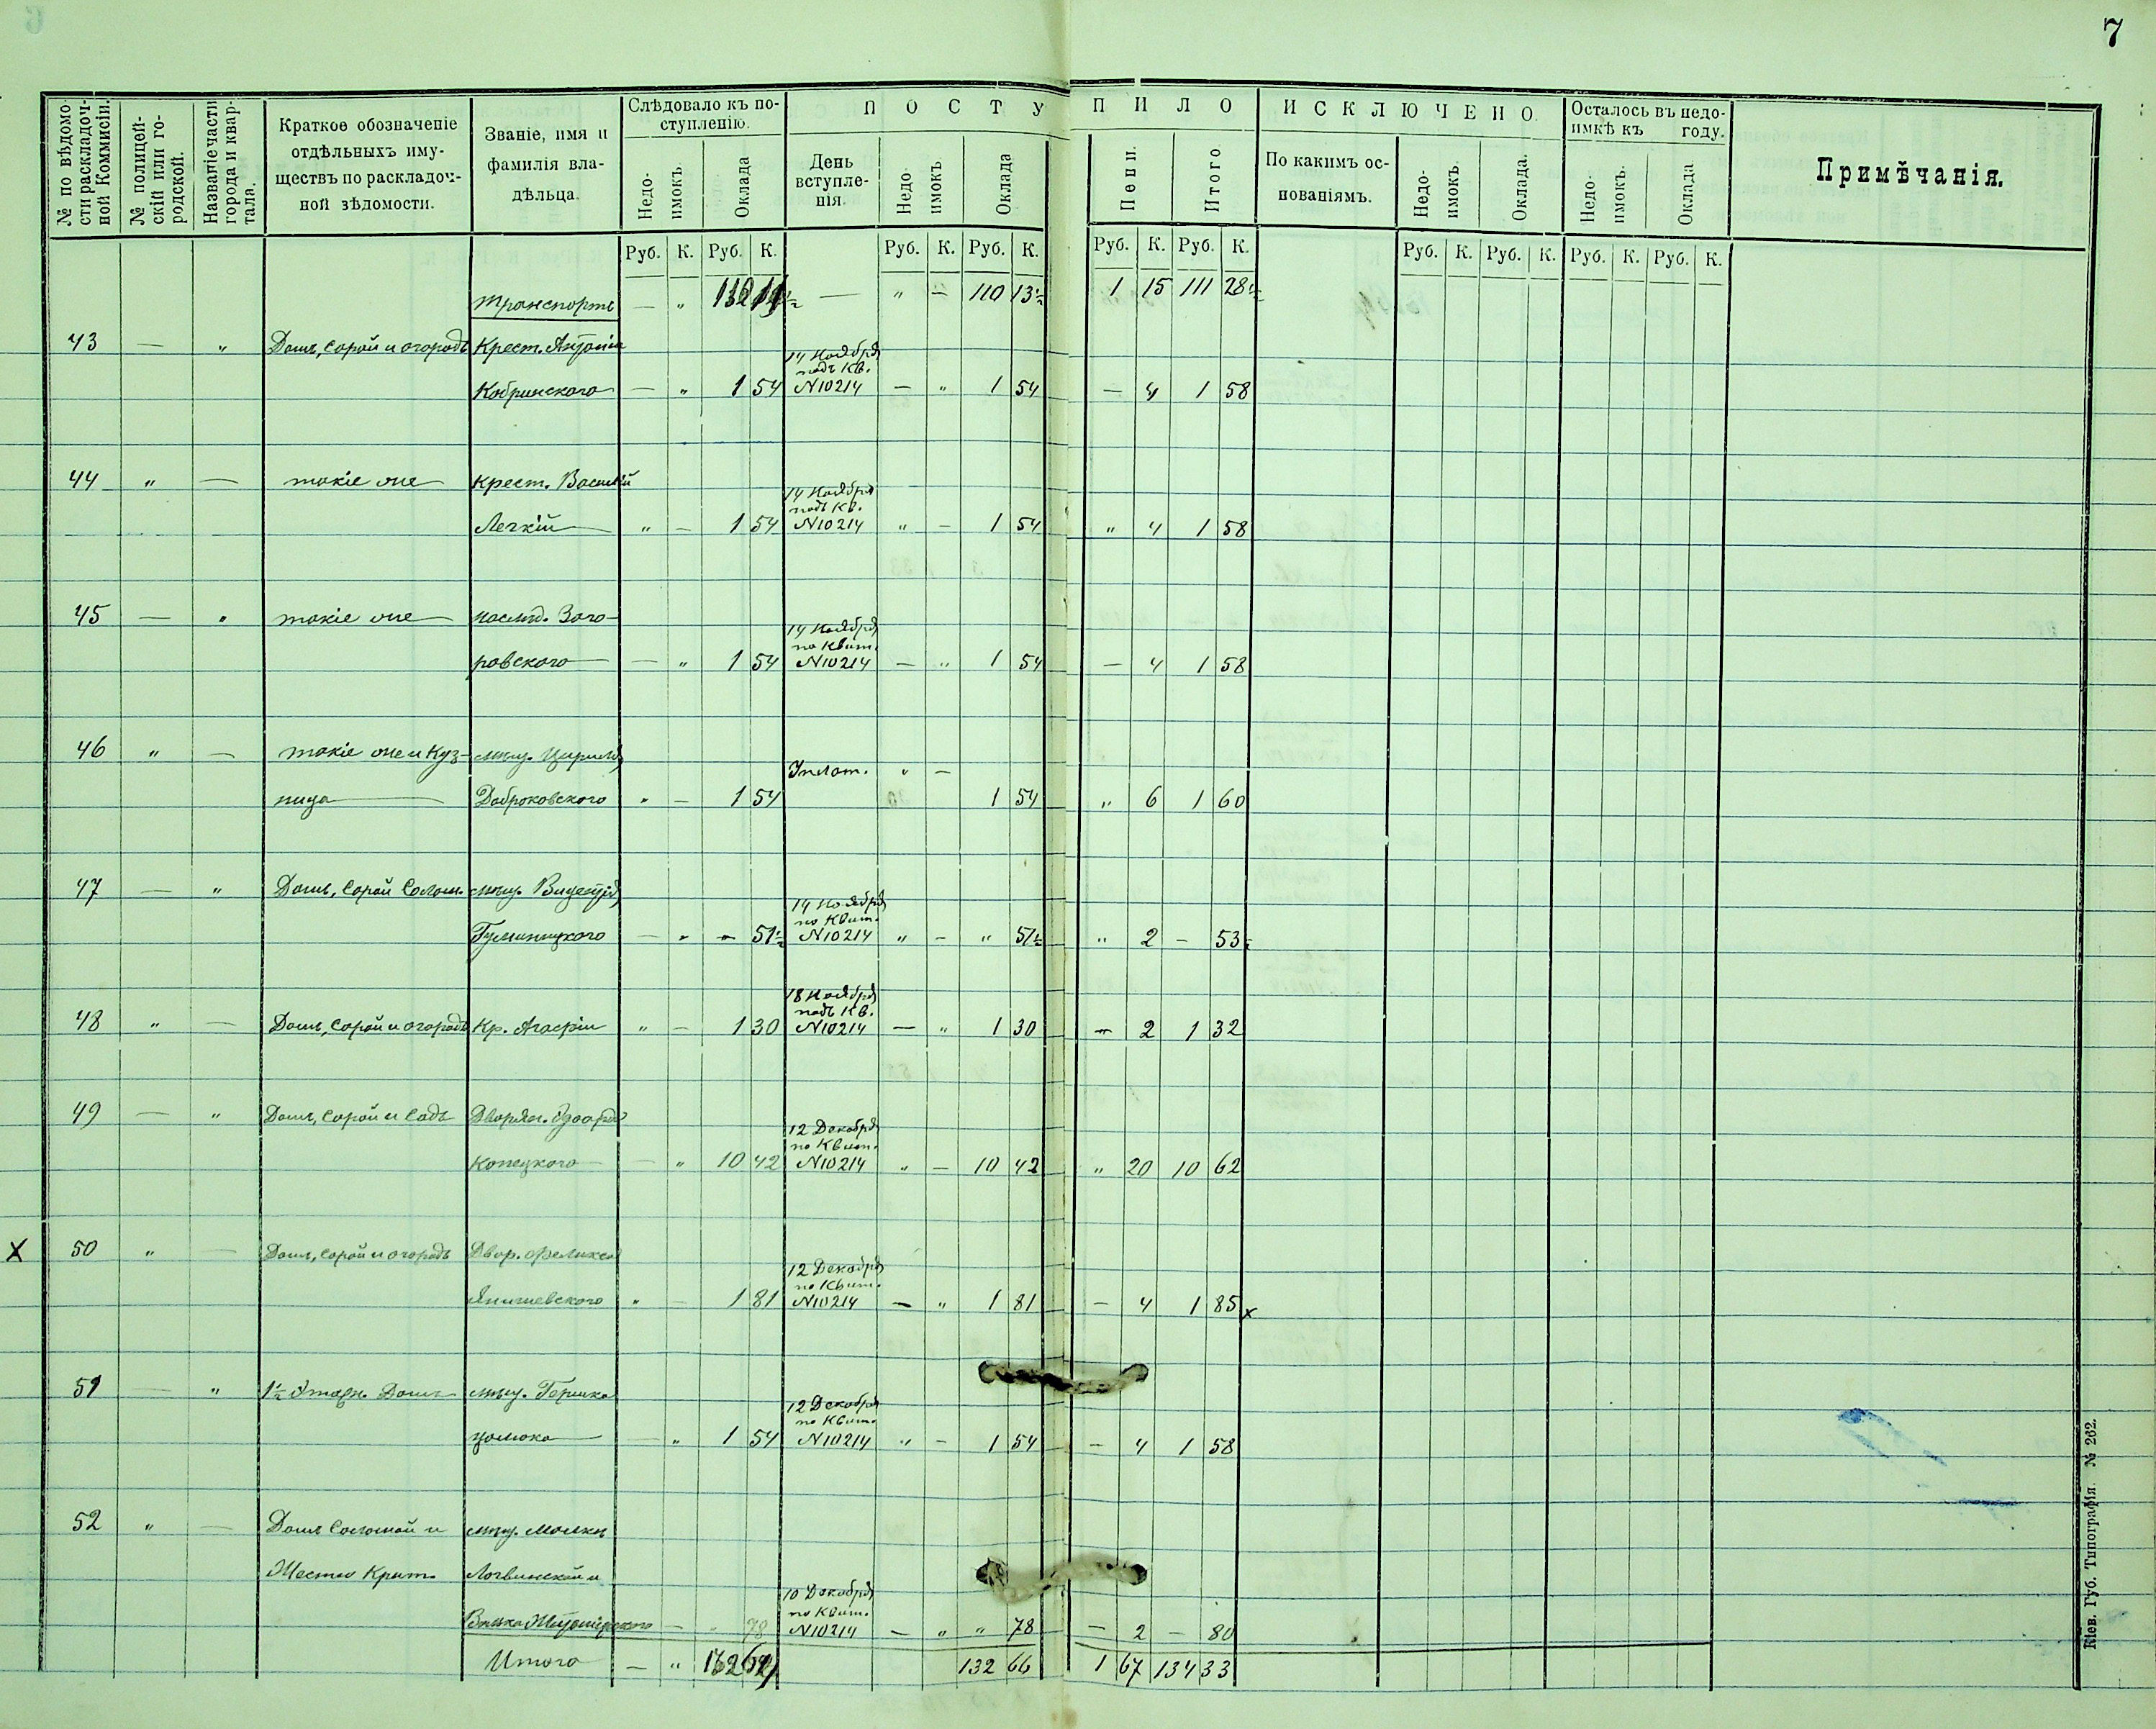 7
№ по вѣдомости раскладочной Коммисіи.
№ полицейскій или городской.
Названіе части города и квартала.
Краткое обозначеніе отдѣльныхъ имуществъ по раскладочной вѣдомости.
Званіе, имя и фамилія владѣльца.
Слѣдовало къ поступленію.
Недоимокъ. Оклада
ПОСТУПИЛО
День вступленія. Недоимокъ Оклада Пени. Итого
ИСКЛЮЧЕНО.
По какимъ основаніямъ. Недоимокъ. Оклада.
Осталось въ недоимкѣ къ году.
Недоимокъ. Оклада
Примѣчанія.
Руб. К. Руб. К. Руб. К. Руб. К. Руб. К. Руб. К. Руб. К. Руб. К. Руб. К. Руб. К.
Транспортъ — „ — „ — 110 13½ 1 15 111 28½
43 — „ Домъ, сарай и огородъ Крест. Антонія
14 Ноября
подъ Кв.
Кобринского — „ 1 54 N10214 — „ 1 54 — 4 1 58
44 „ — такіе же Крест. Василій
14 Ноября
подъ Кв.
Легкій „ — 1 54 N10214 „ — 1 54 „ 4 1 58
45 — „ такіе же наслѣд. Заго-
14 Ноября
по Квит.
ровского — „ 1 54 N10214 — „ 1 54 — 4 1 58
46 „ — такіе же и Куз- мѣщ.
Уплот. „ —
ница Доброковского „ — 1 54 1 54 „ 6 1 60
47 — „ Домъ, сарай Солом. мѣщ.
14 Ноября
по Квит.
— „ „ 51½ N10214 „ — „ 51½ „ 2 — 53½
18 Ноября
подъ Кв.
48 „ — Домъ, сарай и огородъ Кр. „ — 1 30 N10214 — „ 1 30 — 2 1 32
49 — „ Домъ, сарай и садъ Дворян.
12 Декабря
по Квит.
Копецкого — „ 10 42 N10214 „ — 10 42 „ 20 10 62
X 50 „ — Домъ, сарай и огородъ Двор. Феликса
12 Декабря
по Квит.
Янишевского „ — 1 81 N10214 — „ 1 81 — 4 1 85 x
51 — „ 1½ Этажн. Домъ мѣщ. Гершка
12 Декабря
по Квит.
— „ 1 54 N10214 „ — 1 54 — 4 1 58
52 „ — Домъ и мѣщ.
Логвинской и
10 Декабря
по Квит.
— „ 78 N10214 — „ „ 78 — 2 — 80
Итого — „ 132 66 1 67 134 33
Кіев. Губ. Типографія. № 262.